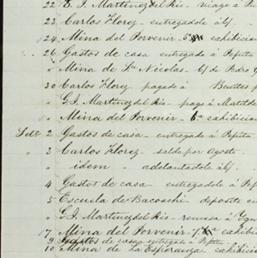 22 E. J. Martinez del Rio - viage á P
23 Carlos Florez - entregadole á
24 Mina del Porvenir - 5ª exhibicion
26 Gastos de casa - entregado á Pepita
" Mina de Sn Nicolas - de Pedro
30 Carlos Florez - pagado á Benites
" G. J. Martinez del Rio - pagó á Matilde
" Mina del Porvenir - 6ª exhibicion
2 Gastos de casa - entregado á Pepita
3 Carlos Florez - saldo por Agosto
" idem - adelantadole
4 Gastos de casa - entregado á Pepita
5 Escuela de Bacoachi - deposito en
" G. J. Martinez del Rio - remesa á
7 Mina del Porvenir - 7ª exhibicion
9 Gastos de casa entregado á Pepita
10 Mina de la Esperanza exhibicion